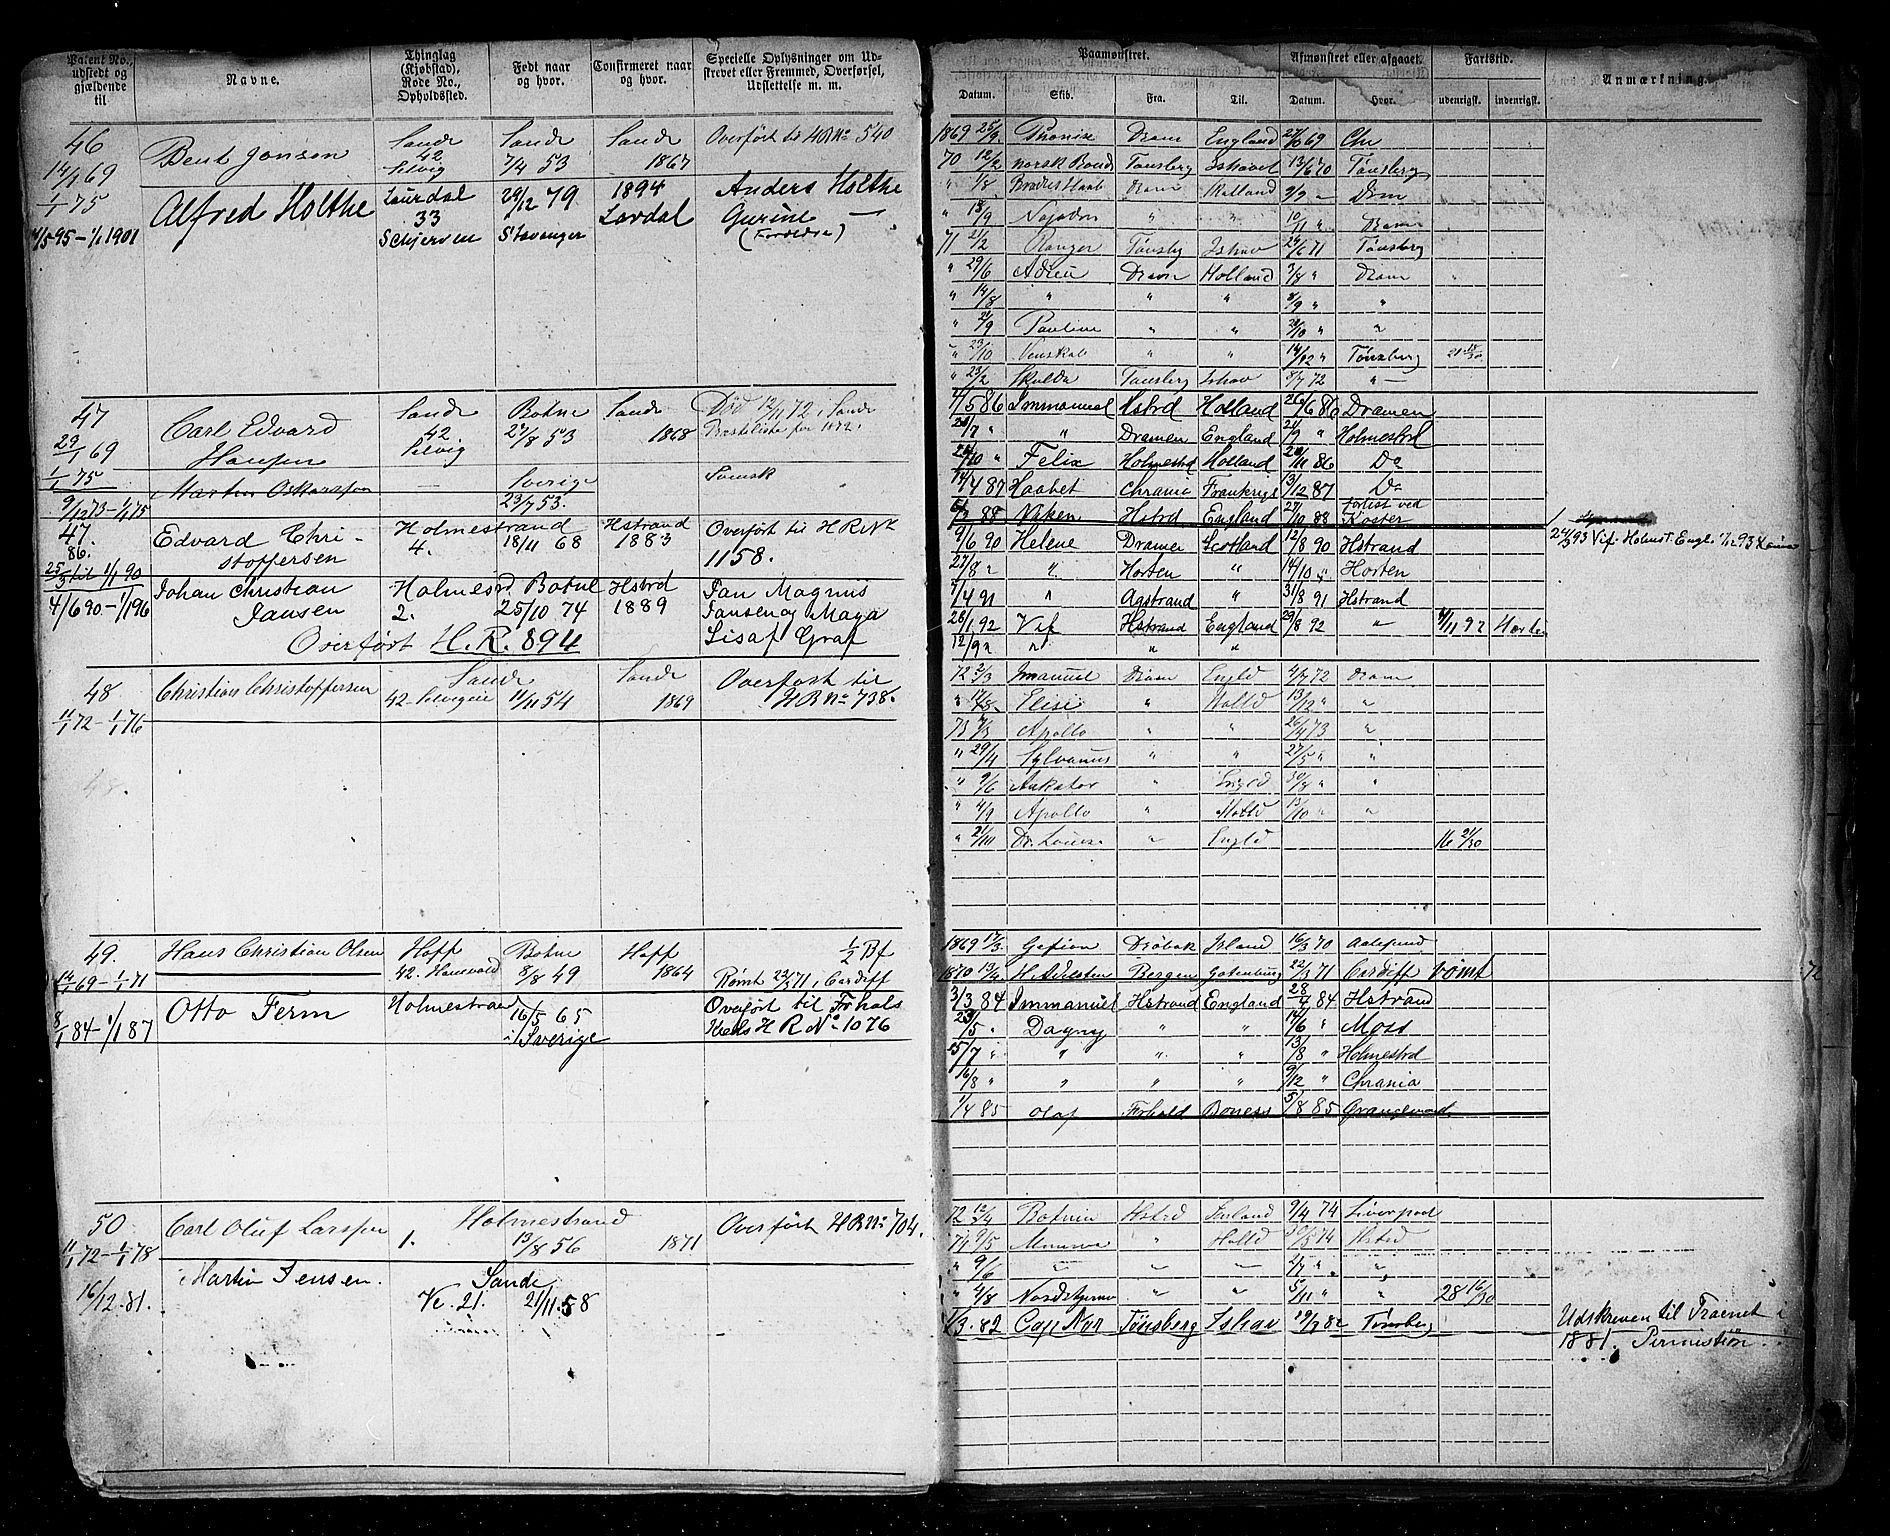 Patent No., udstedt og gjældende til
Navne.
Thinglag (Kjøbstad), Rode No., Opholdssted.
Født naar og hvor.
Confirmeret naar og hvor.
Specielle Oplysninger om Udstrevet eller Fremmed, Overførsel, Udslettelse m. m.
Paamønstret.
Afmønstret eller afgaaet.
Fartstid.
Anmærkning.
Datum. Skib. Fra. Til. Datum. Hvor. udenrigst. indenrigst.
46 Bent Jonsen Sande 42 Selvig Sande 7/4 53 Sande 1867 Overført til HRNo 540
1/1 75 Alfred Holthe Laurdal 33 Schjerven 24/12 79 Stavanger 1894 Lardal Anders Holthe Gurine — (Forældre)
4/5 95 - 1/1 1901
1869 25/9 Dram England 69 Chr
70 12/2 norsk Bond Tønsberg Ishavet 13/6 70 Tønsberg
" 1/8 Dram Holland 9/9 — Drm
" 18/9 " " 10/11 " Dram
71 21/2 Ranger Tønsbg Ishav 24/6 71 Tønsberg
" 29/6 Adieu Dram Holland 3/8 " Dram
" 14/8 " " " 8/9 " "
" 21/9 Pauline " " "
" 23/10 Venskab " " 14/12 " Tønsberg
" 23/2 Skulda Tønsberg Ishav 8/7 72 " —
47 29/1 69 Carl Edvard Hansen Sande 42 Selvig Botne 27/8 53 Sande 1868 Død 12/11 72 i Sande Præsteliste for 1872.
1/1 75
9/12 73 - 1/1 75 Martin Oskarssen — Sverige 23/7 53. Svensk
47 86. Edvard Christoffersen Holmestrand 4. 18/11 68 Hstrand 1883 Overført til HRNo 1158.
25/5 til 1/1 90
4/6 90 - 1/1 96 Johan Christian Jansen Holmesrd 2. Botne 25/10 74 Hstrd 1889 Jan Magnus Jansen og Maya Lisaf Graf
Overført H.R. 894
1/5 86 Immanuel Hstrd Holland 26/6 86 Dramen
" " Dramen England 21/9 " Holmestrd
" Felix Holmestrd Holland 86 Do
14/4 87 Haabet Chrania Frankrige 13/12 87 Do
88 Nøken Hstrd England 27/10 88 forlist ved Koster
9/6 90 Helene Dramen Scotland 12/8 90 Hstrand
23/8 " " Horten " 14/10 " Horten
7/4 91 " Agstrand " 31/8 91 Hstrand
28/1 92 Vif Hstrand England 29/8 92 " 4/11 92 Horten
12/9 " " " "
93 Vif. Holmst. Engl. 93
48 11/1 72 - 1/1 76 Christian Christoffersen Sande 42 - Selvigen 11/11 54 Sande 1869 Overført til HRNo 738.
48.
72 2/3 Imanuel Dram Engld 4/7 72 Dram
" 17/8 Elise " Holld 13/12 " "
73 7/3 Apollo " " 26/4 73 "
" 29/4 Sylvanus " " 27/5 " "
" 9/6 " Engld 30/8 " "
" 4/9 Apollo " Holld 13/10 " "
" 21/10 Dr. Louise " Engld 16 21/30
49. 14/1 69 - 1/1 71 Hans Christian Olsen Hoff 42. Botne 8/8 49 Hoff 1864 1/2 Bf Rømt 22/3 71 i Cardiff
1869 17/3 Gefion Drøbak Island 16/3 70 Aalesund
1870 13/4 H. Adelsten Bergen Gotenburg 22/3 71 Cardiff rømt
8/1 84 - 1/1 87 Otto Ferm Holmestrand 16/5 65 i Sverige Overført til Forhals HRNo 1076
3/3 84 Immanuel Hstrand England 28/4 84 Hstrand
23/5 " Dagny " " 14/6 " Moss
15/7 " " " " 13/8 " Holmestrd
16/8 " " " " 9/12 " Chrania
1/4 85 Olaf Forhold Boness 5/8 85 Grangemouth
50 11/1 72 - 1/1 78 Carl Oluf Larssen 1. Holmestrand 13/8 56 1871 Overført HRNo 704.
16/12 81. Martin Jensen. Sande Ve. 21. 21/11 58
72 12/4 Botnia Hstrd 9/4 74 Liverpool
74 9/5 " Holld 30/5 74 Hstrd
" 9/6 " " " 2/7 " "
" 4/8 Nordstjernen " " 5/11 " " 28 16/30
1/3. 82 Cap Nor Tønsberg Ishav 19/7 82 Tønsberg Udskreven til Trænet i 1881. Permistion.